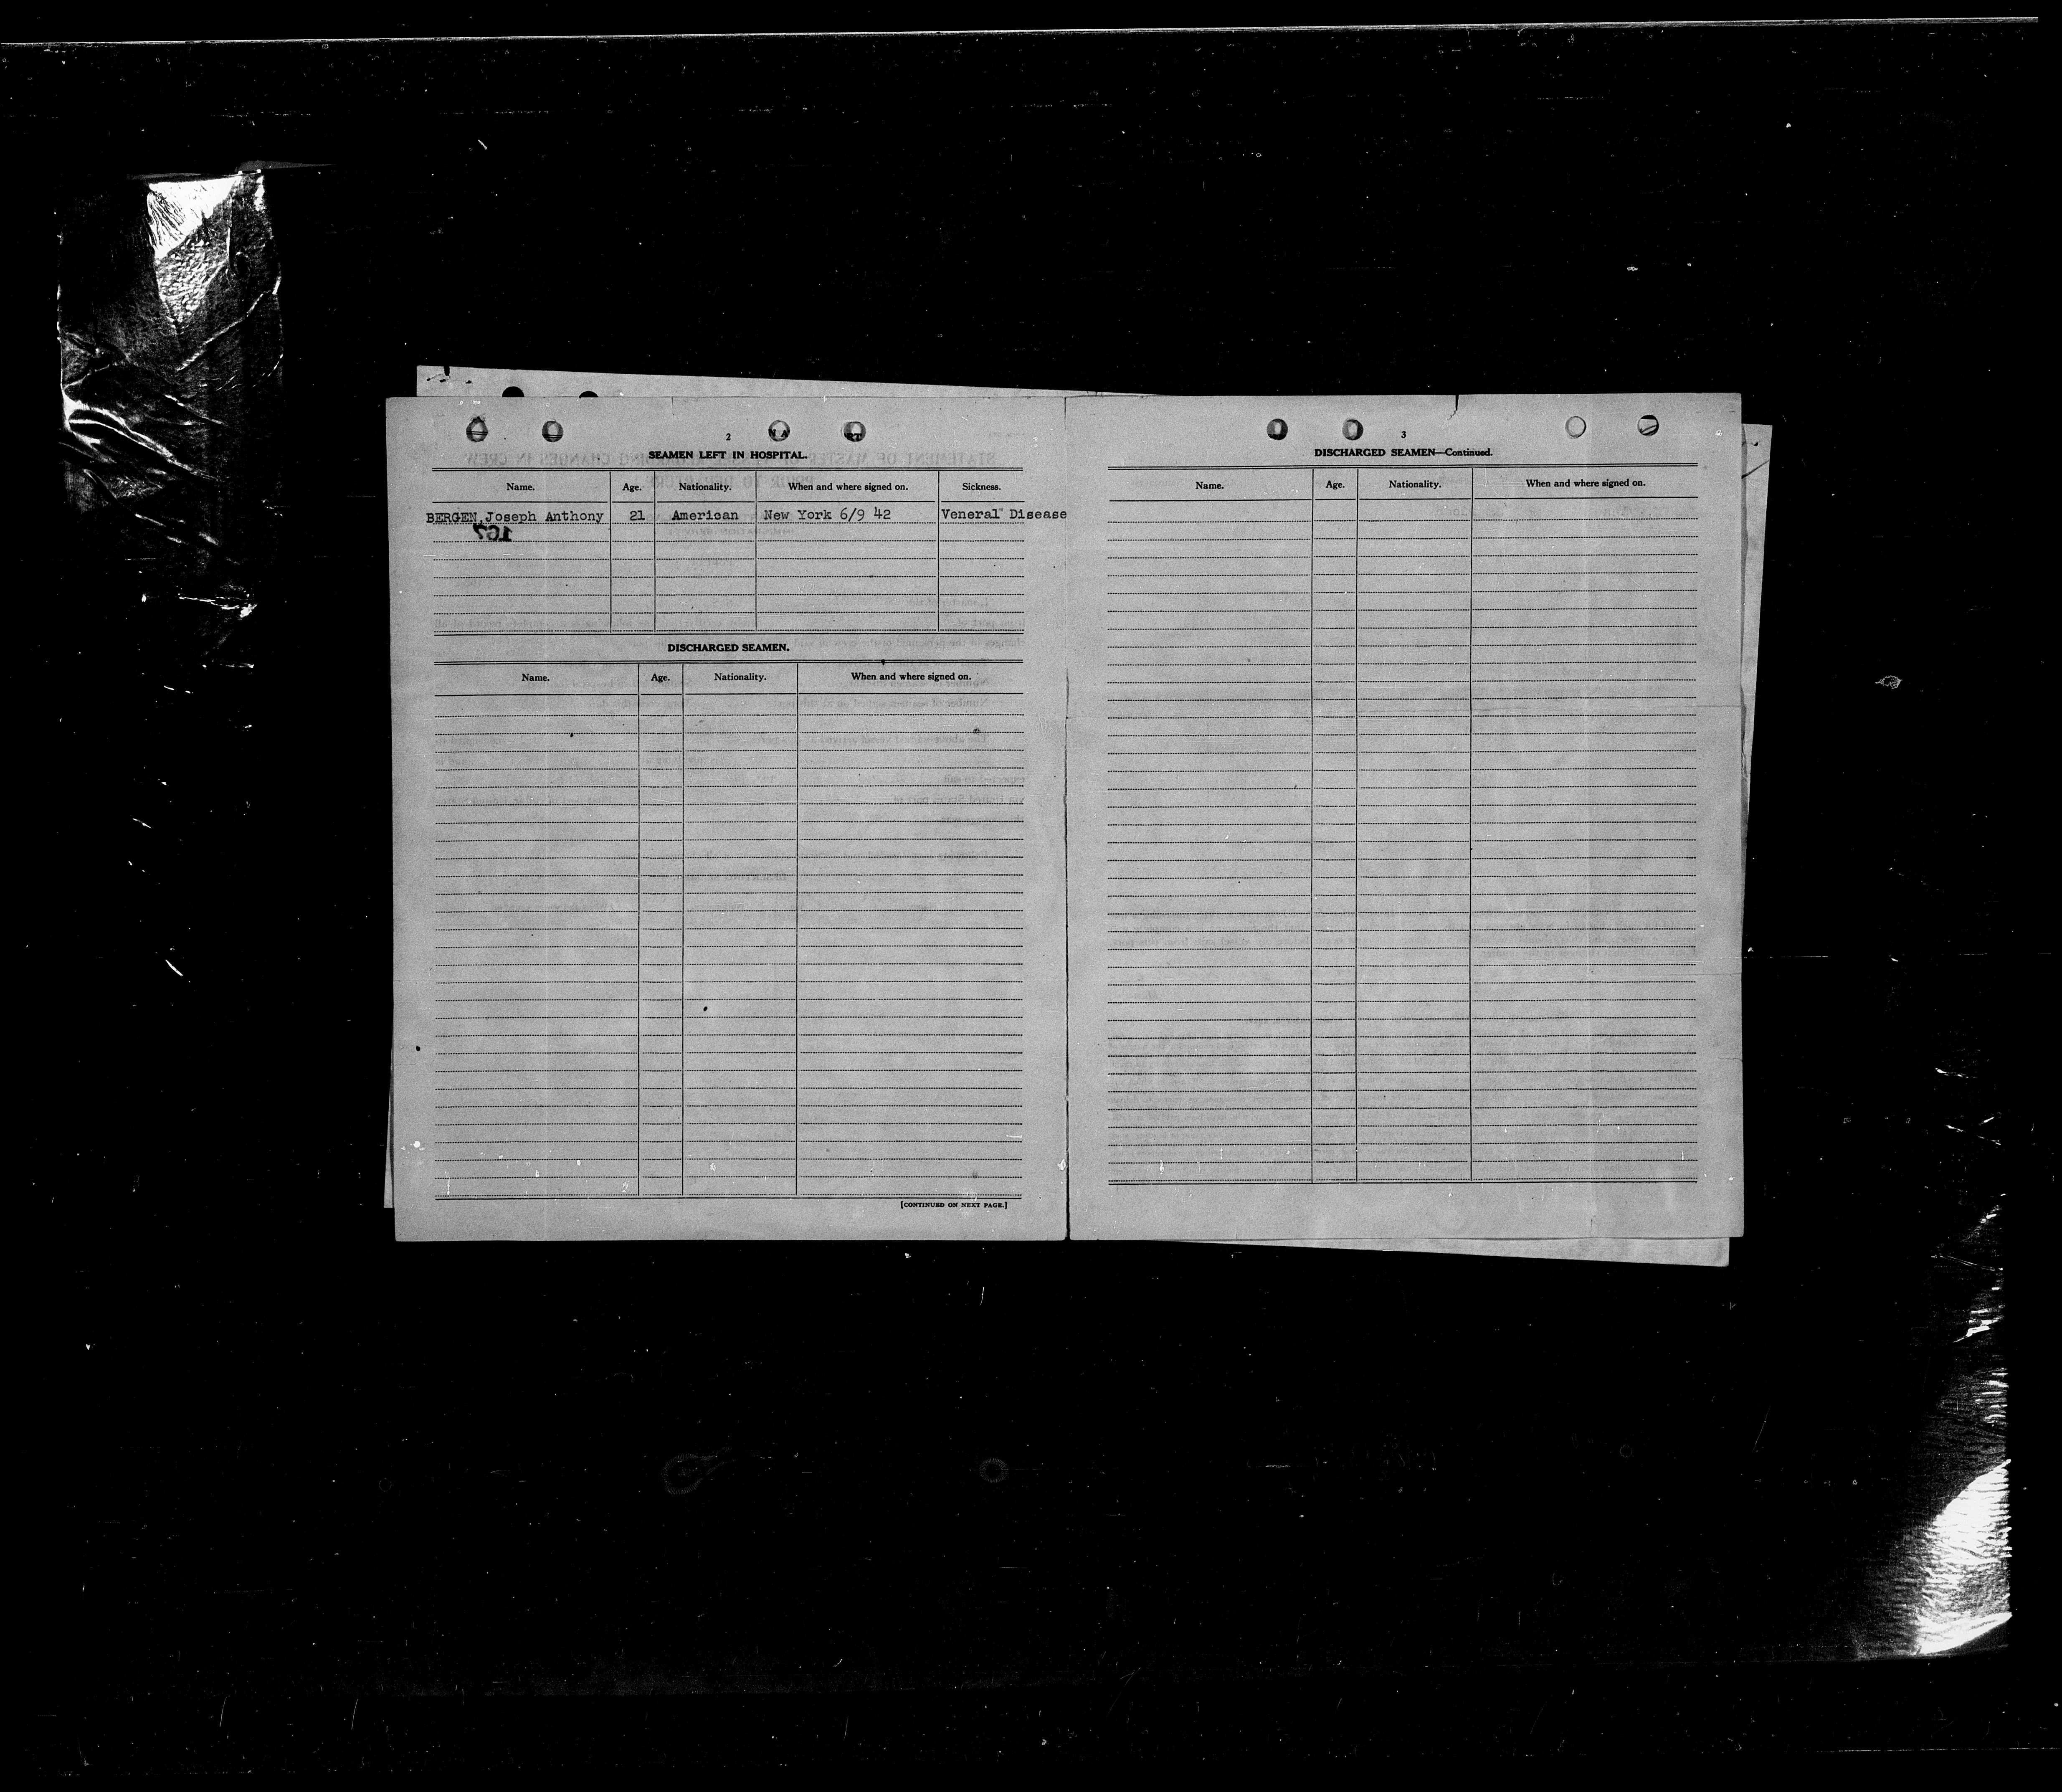 2
SEAMEN LEFT IN HOSPITAL.
Name. Age. Nationality. When and where signed on. Sickness.
BERGEN, Joseph Anthony 21 American New York 6/9 42 Veneral Disease
167
DISCHARGED SEAMEN.
Name. Age. Nationality. When and where signed on.
[CONTINUED ON NEXT PAGE.]
3
DISCHARGED SEAMEN—Continued.
Name. Age. Nationality. When and where signed on.